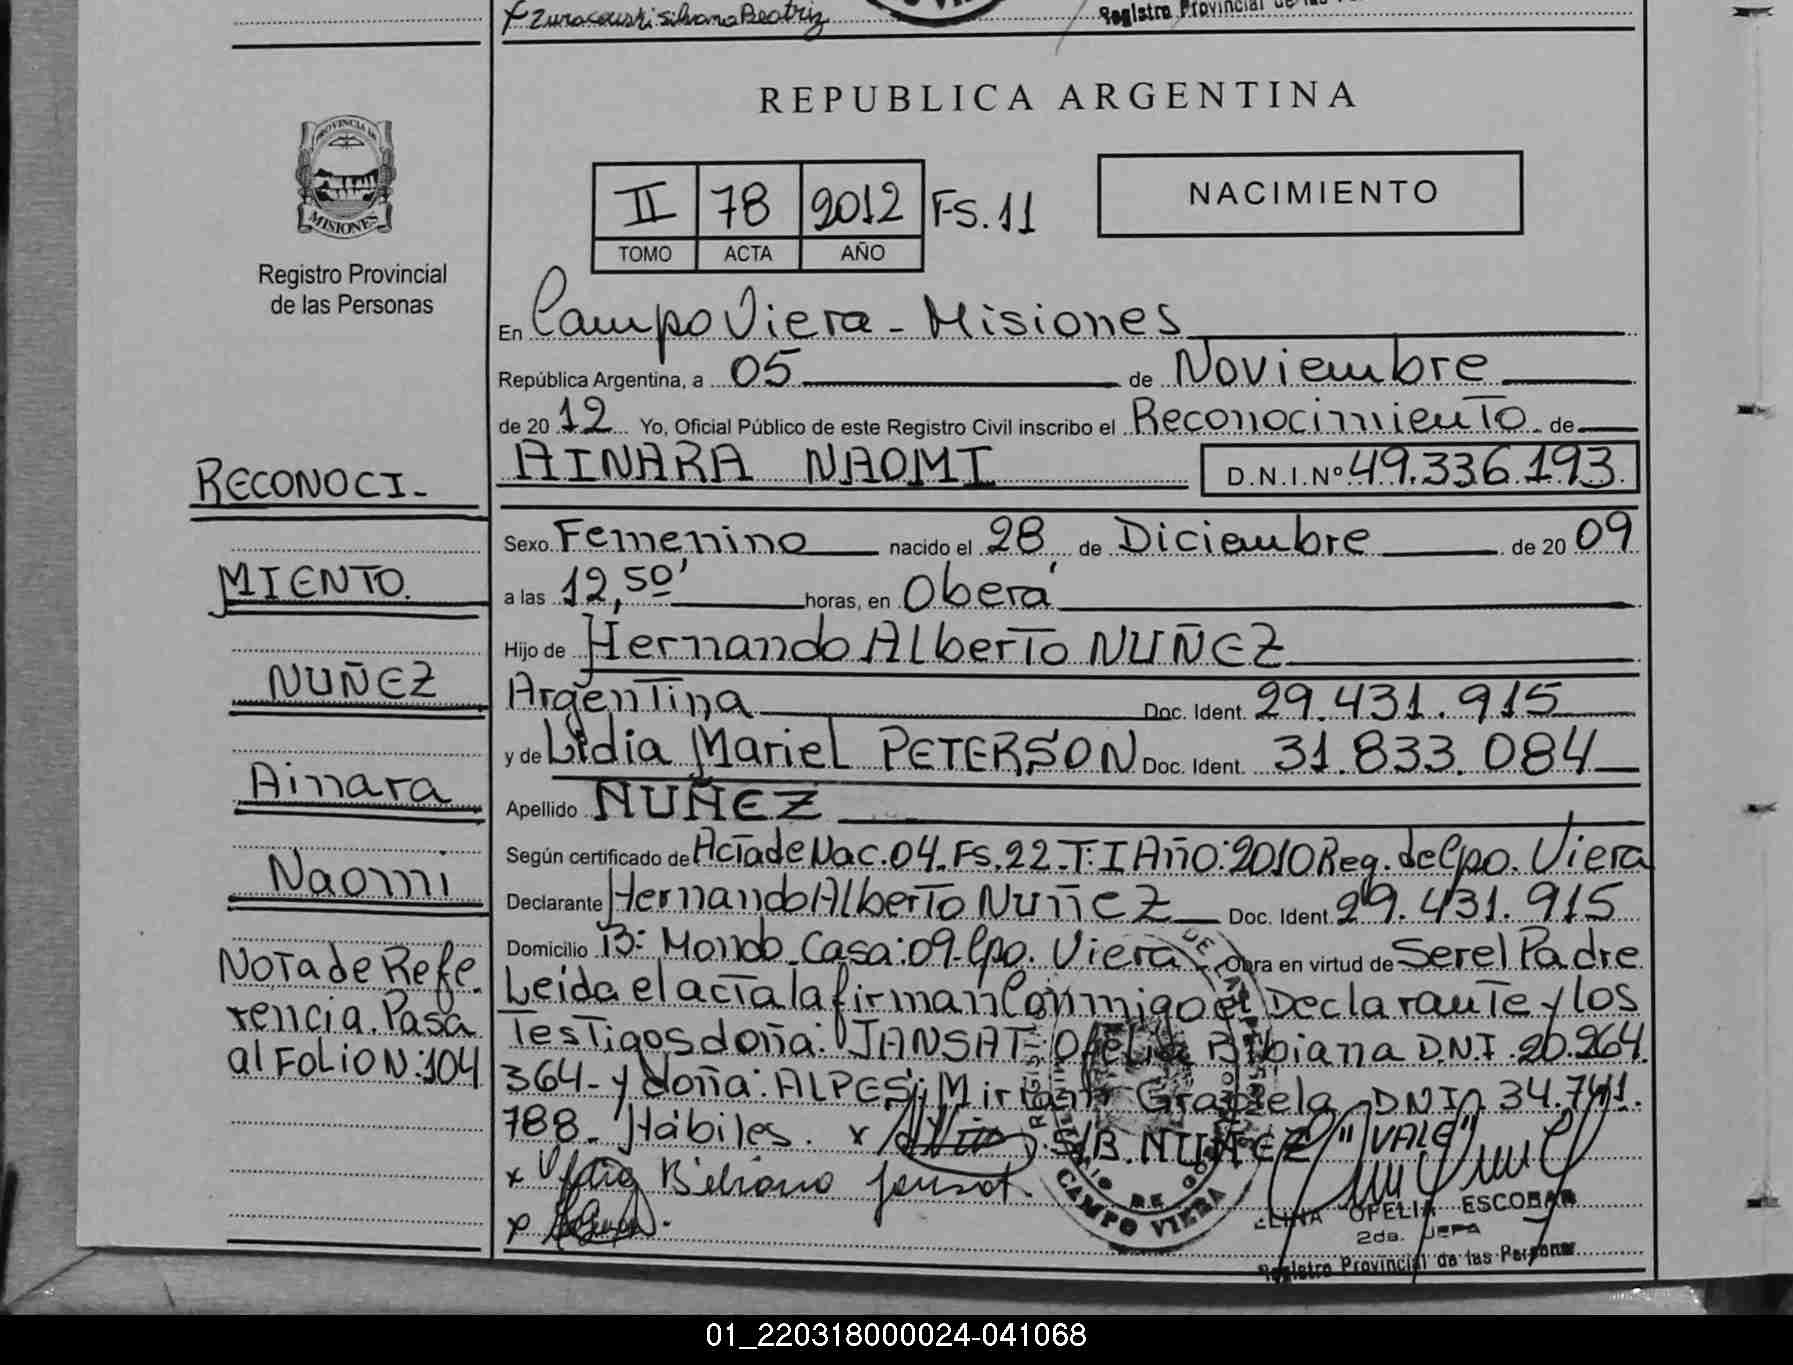 x Zuracouski Silvana Beatriz
Registro Provincial de las
REPUBLICA ARGENTINA
PROVINCIA DE
MISIONES
Registro Provincial
de las Personas
II 78 2012 FS.11
TOMO ACTA AÑO
NACIMIENTO
En Campo Viera - Misiones
República Argentina, a 05 de Noviembre
de 2012 Yo, Oficial Público de este Registro Civil inscribo el Reconocimiento de
AINARA NAOMI D.N.I.Nº 49.336.193
Sexo Femenino nacido el 28 de Diciembre de 2009
a las 12,50' horas, en Oberá
Hijo de Hernando Alberto NUÑEZ
Argentina Doc. Ident. 29.431.915
y de Lidia Mariel PETERSON Doc. Ident. 31.833.084
Apellido NUÑEZ
Según certificado de Acta de Nac. 04. Fs. 22. T: I Año: 2010 Reg. de Cpo. Viera
Declarante Hernando Alberto Nuñez Doc. Ident. 29.431.915
Domicilio B: Mondo Casa: 09 - Cpo. Viera Obra en virtud de Ser el Padre
Leida el acta la firman Conmigo el Declarante y los
Testigos doña: JANSAT: Ofelia Bibiana D.N.I. 20.264.
364 - y doña: ALPES; Miriam Graciela DNI 34.741.
788 - Hábiles. x S/B. NUÑEZ "VALE"
x Bibiana Jansat.
x
CAMPO VIERA
ELINA OFELIA ESCOBAR
2da. JEFA
Registro Provincial de las Personas
RECONOCI-
MIENTO.
NUÑEZ
Ainara
Naomi
Nota de Refe.
rencia. Pasa
al FOLIO N: 104
01_220318000024-041068